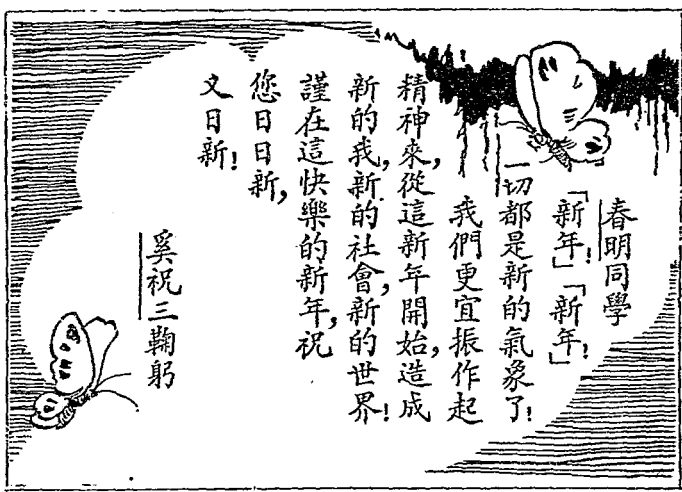 春明同學
「新年」!「新年」!
一切都是新的氣象了!
我們更宜振作起
精神來,從這新年開始,造成
新的我,新的社會,新的世界!
謹在這快樂的新年,祝
您日日新,
又日新!
奚祝三鞠躬